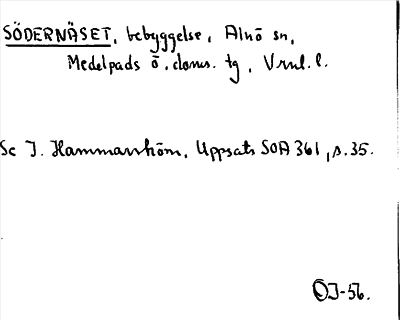 SÖDERNÄSET, bebyggelse, Alnö sn,
Medelpads ö. doms. tg, Vrnl. l.
Se I. Hammarström, Uppsats SOA 361, s. 35.
ÖJ-56.